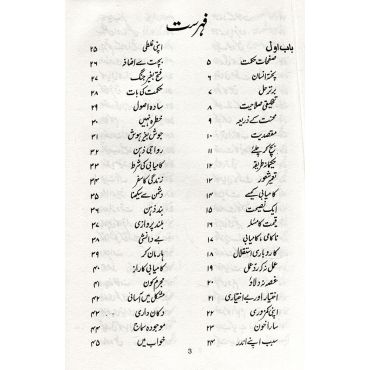 فہرست
باب اول
صفحات حکمت ۵
پختہ انسان ۶
برتر حل ۷
تخلیقی صلاحیت ۸
محنت کے ذریعہ ۹
مقصدیت ۱۰
بچ کر چلئے ۱۱
حکیمانہ طریقہ ۱۲
تعمیر شعور ۱۳
کامیابی کیسے ۱۴
ایک نصیحت ۱۵
قیمت کا مسئلہ ۱۶
ناکامی، کامیابی ۱۷
کاروباری استقلال ۱۸
عمل نہ کہ ردعمل ۱۹
غصہ نہ دلاؤ ۲۰
اختیار اور بے اختیاری ۲۱
اپنی کمزوری ۲۲
سارا خون ۲۳
سبب اپنے اندر ۲۴
اپنی غلطی ۲۵
بچت سے اضافہ ۲۶
فتح بغیر جنگ ۲۷
حکمت کی بات ۲۸
سادہ اصول ۲۹
خطرہ نہیں ۳۰
جوش بغیر ہوش ۳۱
رواجی ذہن ۳۲
کامیابی کی شرط ۳۳
زندگی کا سفر ۳۴
دشمن سے سیکھنا ۳۵
بند ذہن ۳۶
بلند پروازی ۳۷
بے دانشی ۳۸
ہار مان کر ۳۹
کامیابی کا راز ۴۰
مجرم کون ۴۱
مشکل میں آسانی ۴۲
دکان داری ۴۳
موجودہ سماج ۴۴
خواب میں ۴۵
3